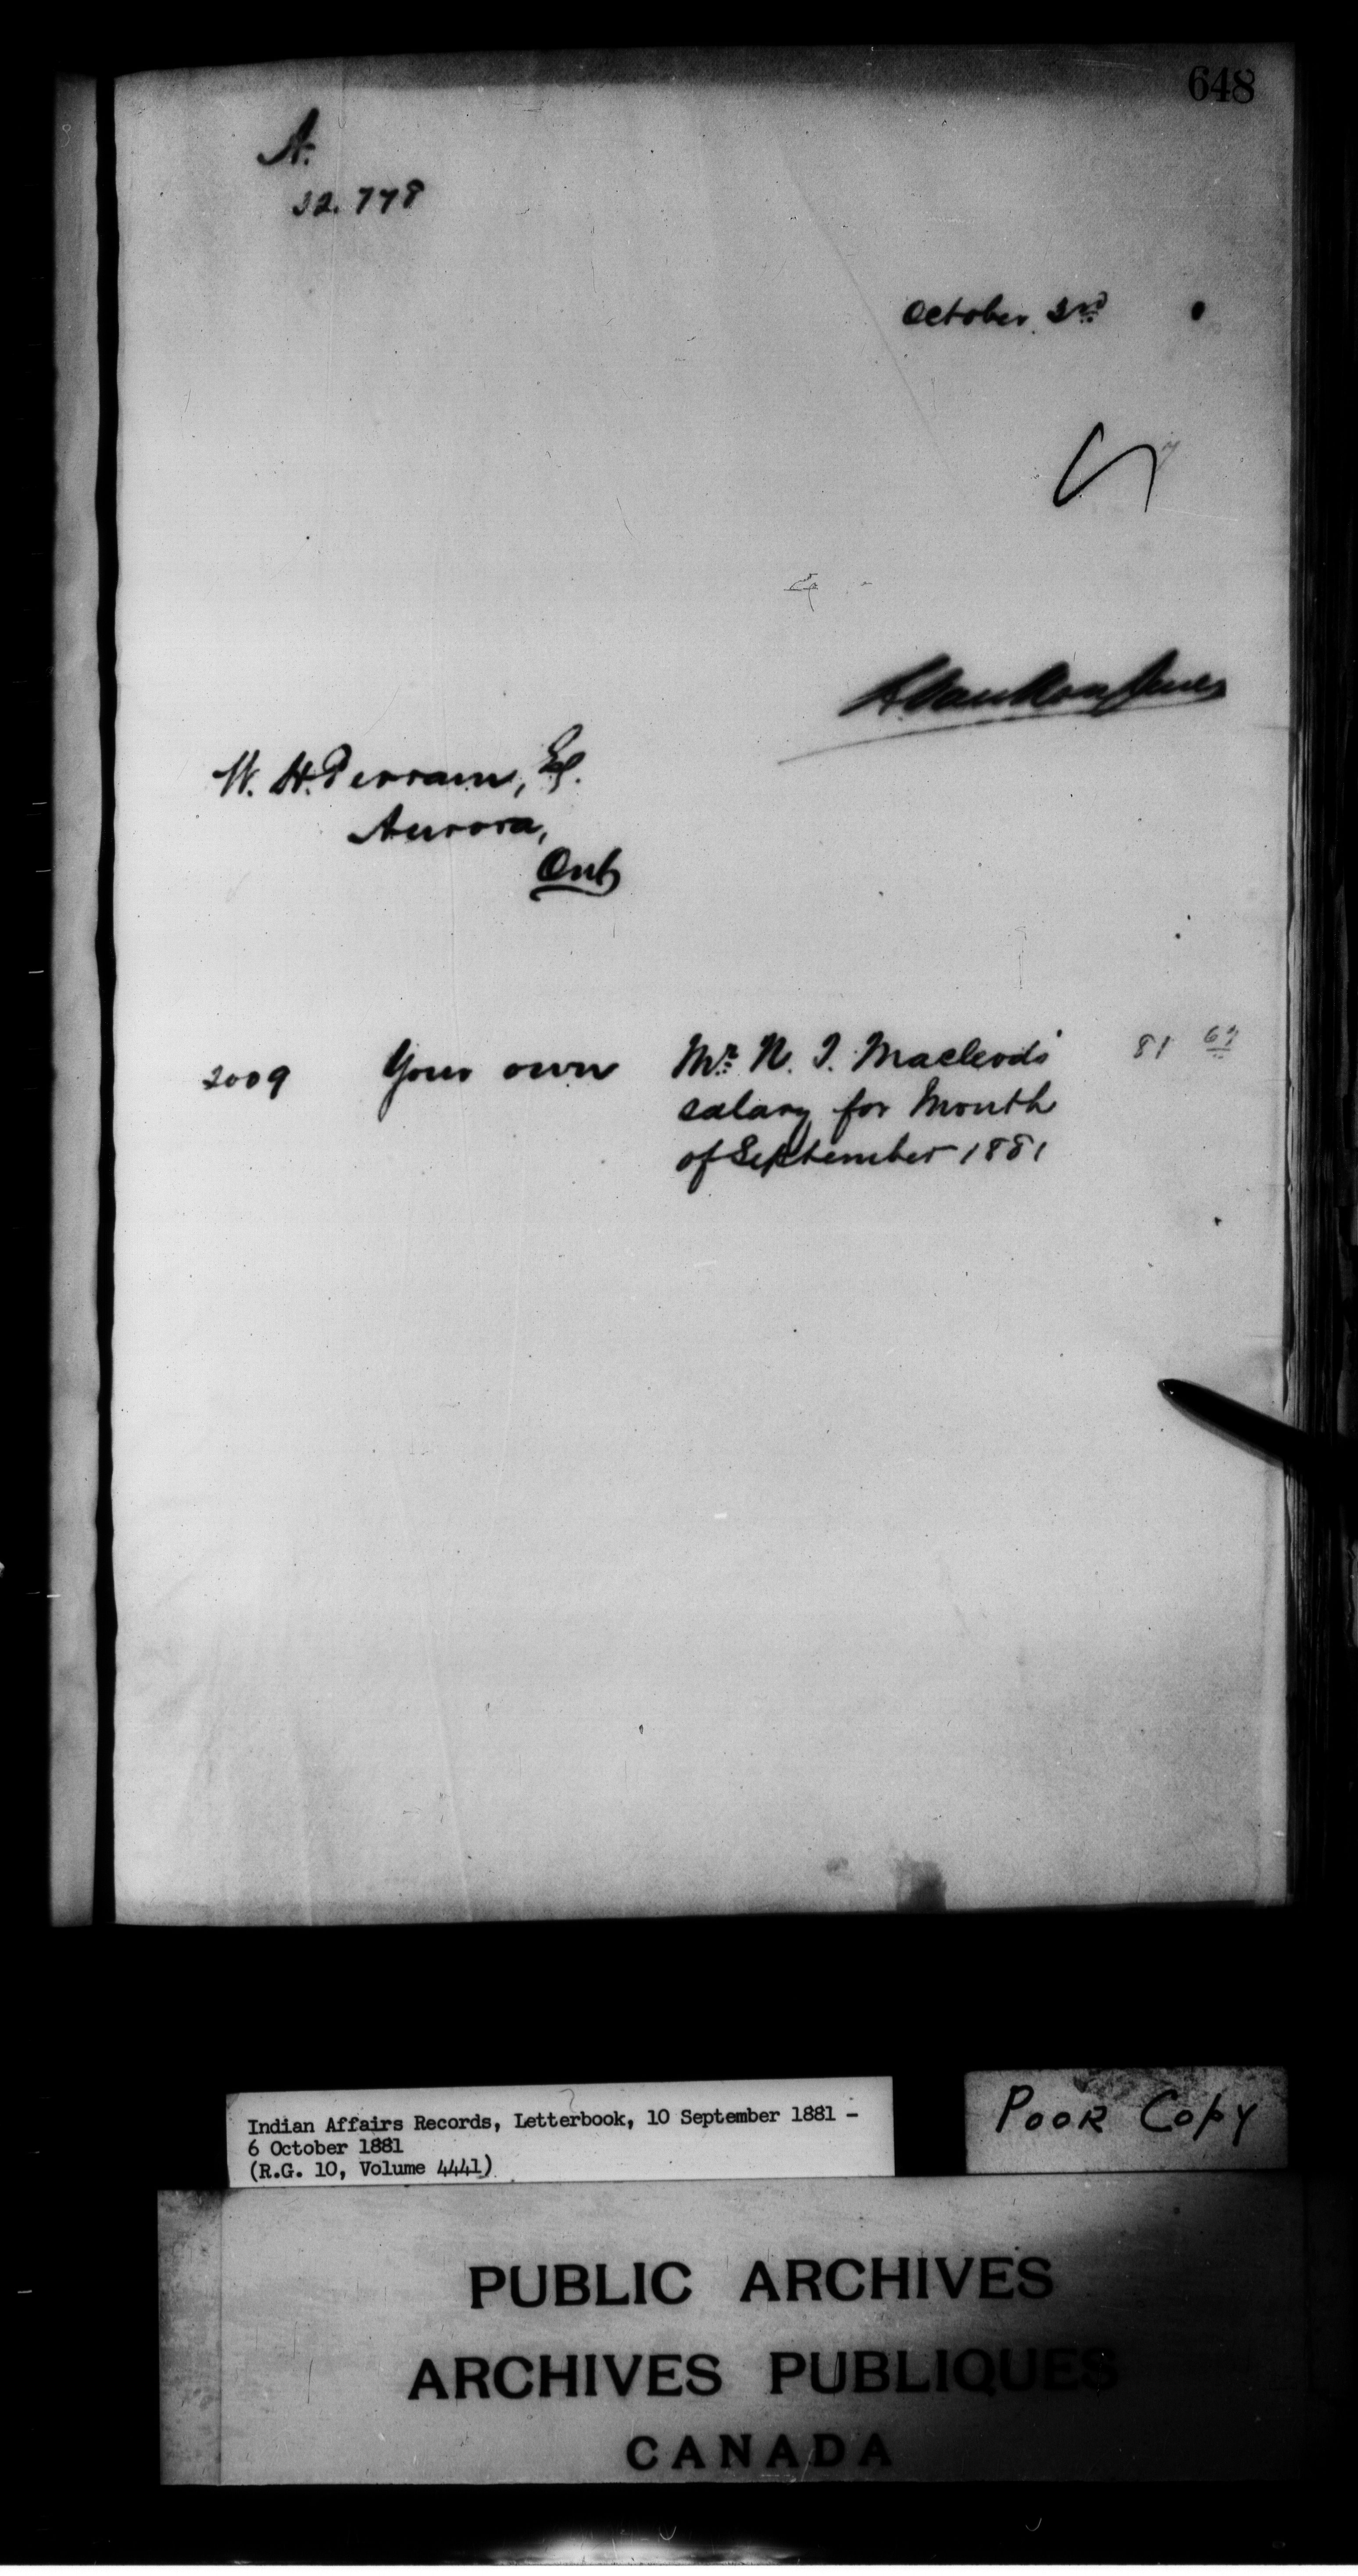 648
A.
32.778
October 3rd
W. H. Perram, Esq.
Aurora,
Ont
2009 Your own Mr. N. T. Macleod's 81 67
salary for Month
of September 1881
Indian Affairs Records, Letterbook, 10 September 1881 -
6 October 1881
(R.G. 10, Volume 4441)
POOR COPY
PUBLIC ARCHIVES
ARCHIVES PUBLIQUES
CANADA